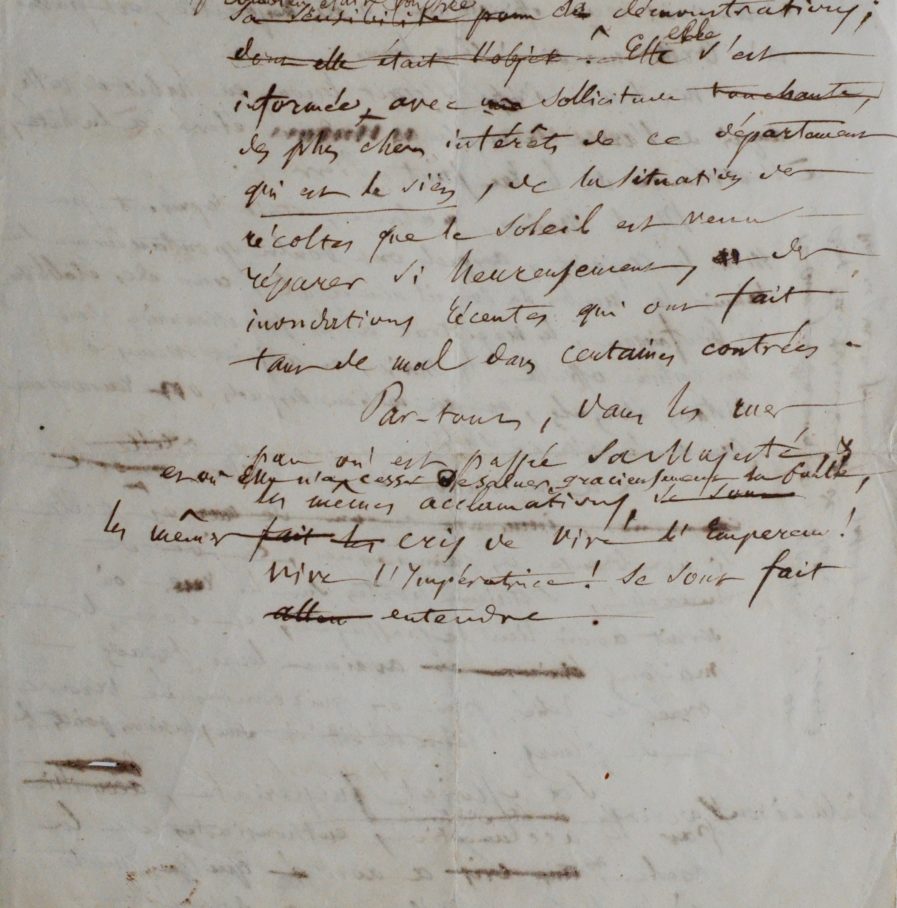 sa sensibilité pour de démonstrations ;
dont elle était l'objet. Elle s'est
informée, avec une sollicitude touchante,
des plus chers intérêts de ce département
qui est le sien, de la situation des
récoltes que le soleil est venu
réparer si heureusement, des
inondations récentes qui ont fait
tant de mal dans certaines contrées.
Par-tout, dans les rues
par où est passée Sa Majesté,
et où Elle n'a cessé de saluer gracieusement la foule,
les mêmes acclamations, se sont
les mêmes fait les cris de Vive l'Empereur !
Vive l'Impératrice ! se sont fait
entendre.